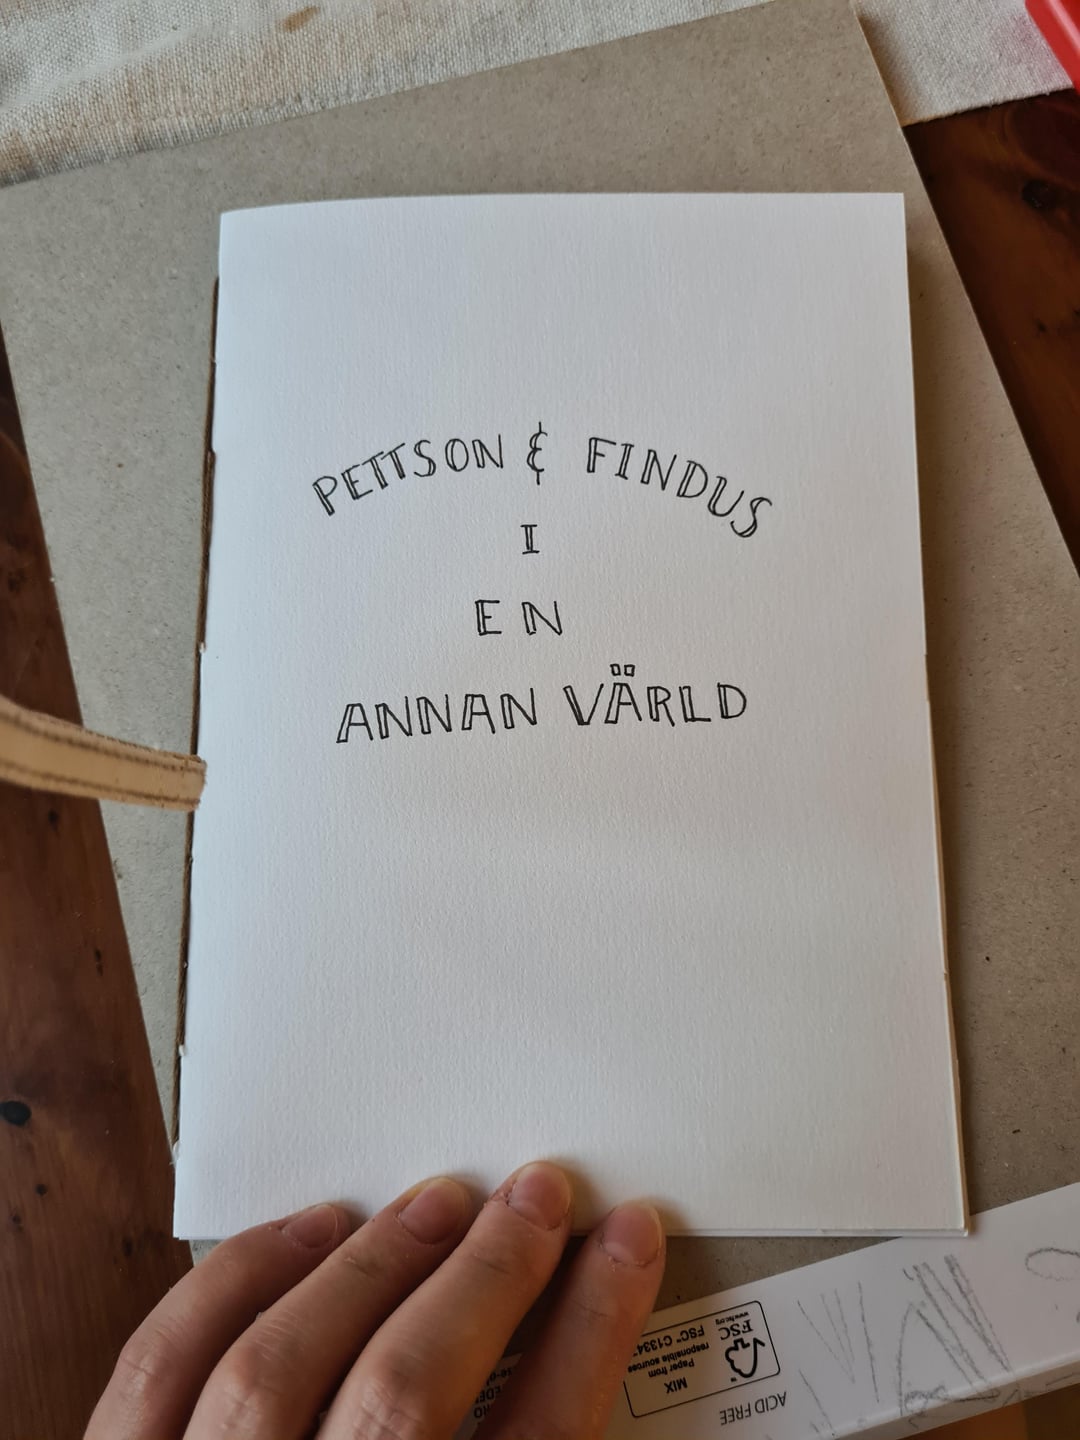 PETTSON & FINDUS
I
EN
ANNAN VÄRLD
FSC
www.fsc.org
MIX
Paper from
responsible sources
ACID FREE